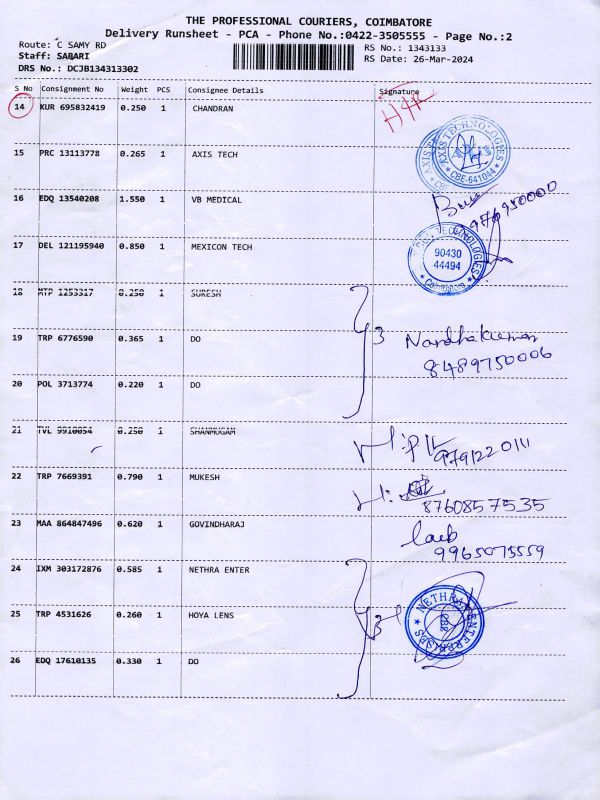 THE PROFESSIONAL COURIERS, COIMBATORE
Delivery Runsheet - PCA - Phone No.:0422-3505555 - Page No.:2
Route: C SAMY RD
RS No.: 1343133
Staff: SABARI
RS Date: 26-Mar-2024
DRS No.: DCJB134313302
S No Consignment No Weight PCS Consignee Details Signature
14 KUR 695832419 0.250 1 CHANDRAN
15 PRC 13113778 0.265 1 AXIS TECH
AXIS TECHNOLOGIES
CBE-641044
16 EDQ 13540208 1.550 1 VB MEDICAL
17 DEL 121195940 0.850 1 MEXICON TECH
TECHNOLOGIES
90430
44494
Coimbatore
18 MTP 1253317 0.250 1 SURESH
19 TRP 6776590 0.365 1 DO
3 Nandhakumar
8489750006
20 POL 3713774 0.220 1 DO
21 TVL 9910054 0.250 1 SHANMUGAM
9791220111
22 TRP 7669391 0.790 1 MUKESH
8760857535
23 MAA 864847496 0.620 1 GOVINDHARAJ
9965075559
24 IXM 303172876 0.585 1 NETHRA ENTER
25 TRP 4531626 0.260 1 HOYA LENS
3
NETHRA ENTERPRISES
CBE
26 EDQ 17610135 0.330 1 DO